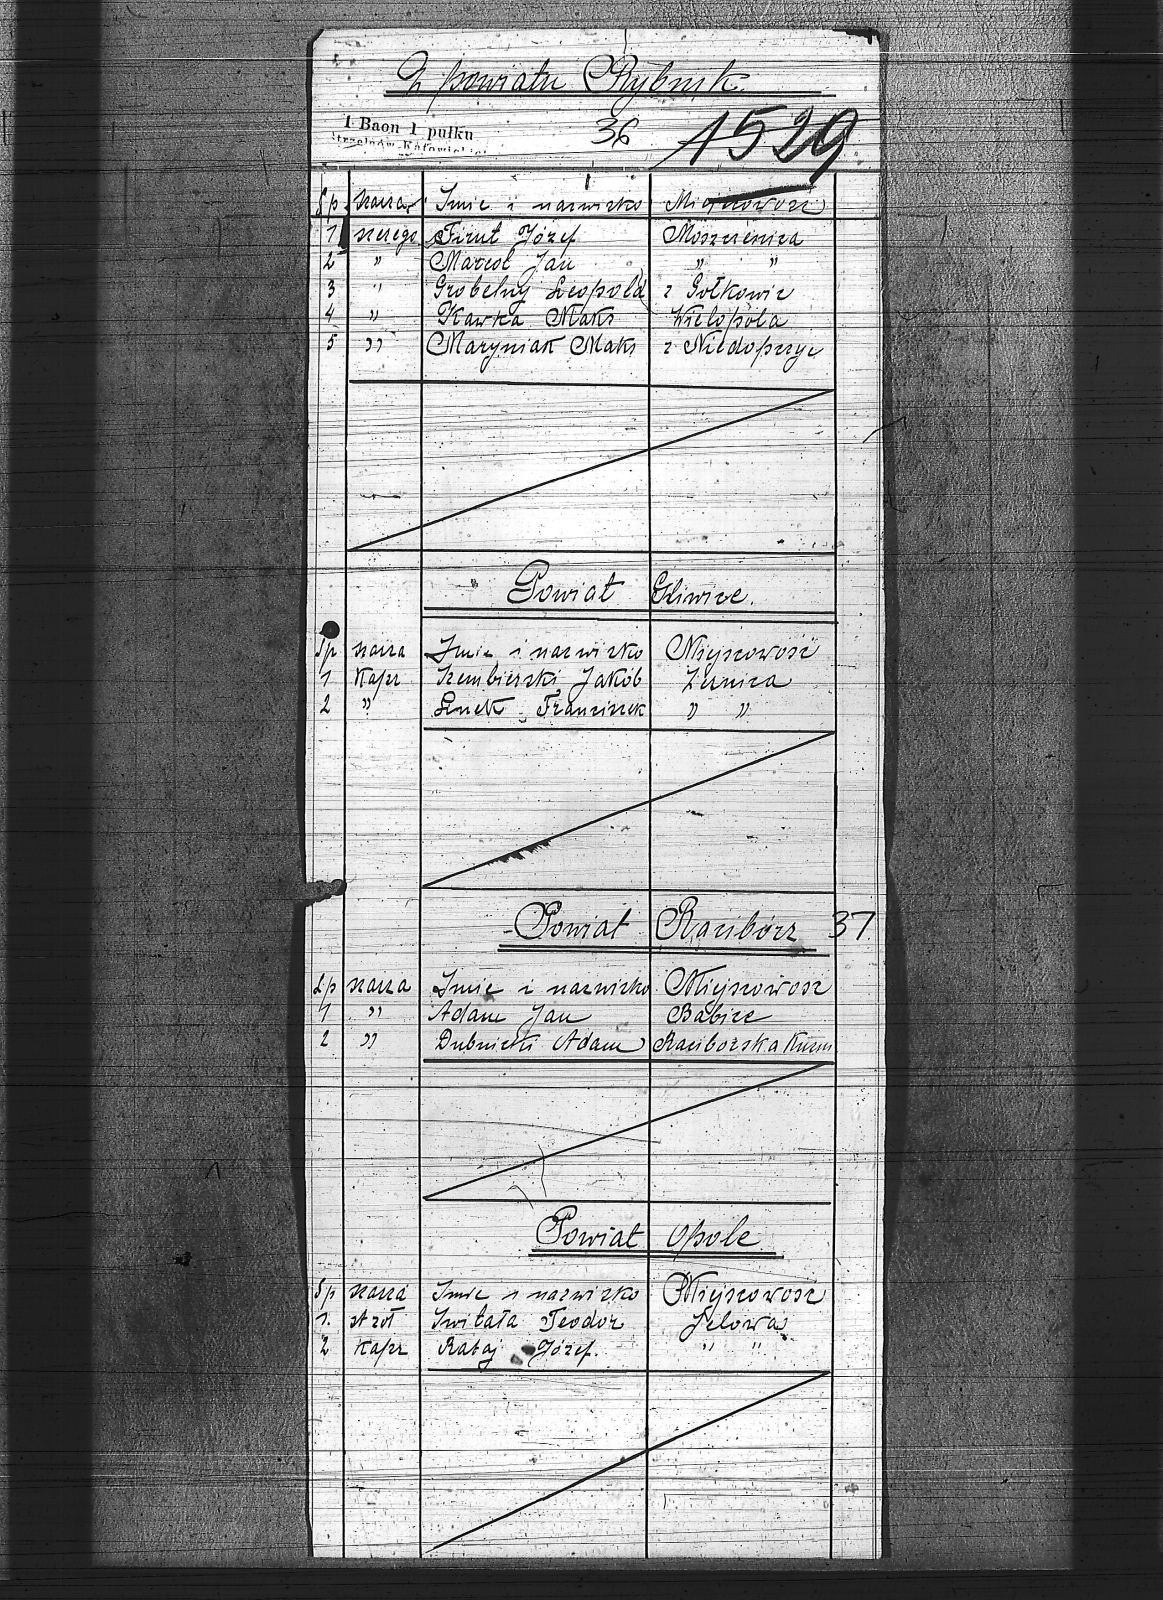 Z powiatu Rybnik
1 Baon 1 pułku
36 1529
Lp szarża Imie i nazwisko Miejscowosz
1 szereg Firut Józef Moszczenica
2 " Marcol Jan " "
3 " Grobelny Leopold z Gołkowic
4 " Kawka Maks Wielopola
5 " Maryniak Maks z
Powiat Gliwice.
Lp szarża Imie i nazwisko Miejscowość
1 Kapr Szembierski Jakób Żernica
2 " Franciszek " "
Powiat Racibórz 37
Lp szarża Imie i nazwisko Miejscowosz
1 " Adam Jan Babice
2 " Dubnicki Adam Raciborska Kuźn
Powiat Opole
Lp szarża Imie i nazwisko Miejscowosz
1. strzl Switała Teodor Jełowa
2 Kapr Rataj Józef. " "